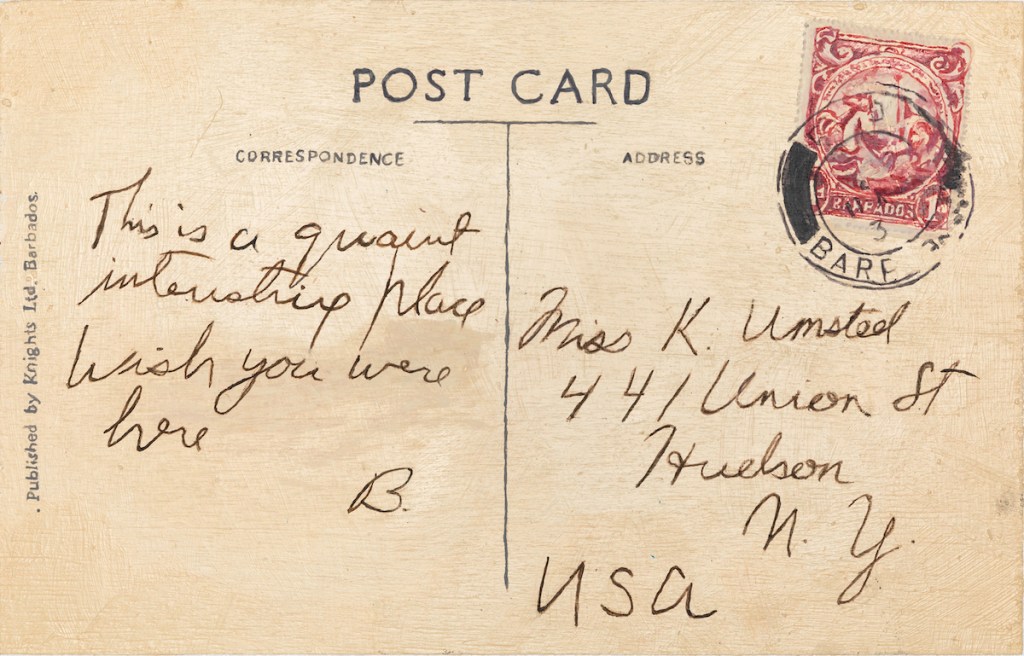 POST CARD
CORRESPONDENCE
ADDRESS
This is a quaint
interesting place
Wish you were
here
B.
Miss K. Umsted
441 Union St
Hudson
N. Y.
USA
. Published by Knights Ltd. Barbados.
BARBADOS
1